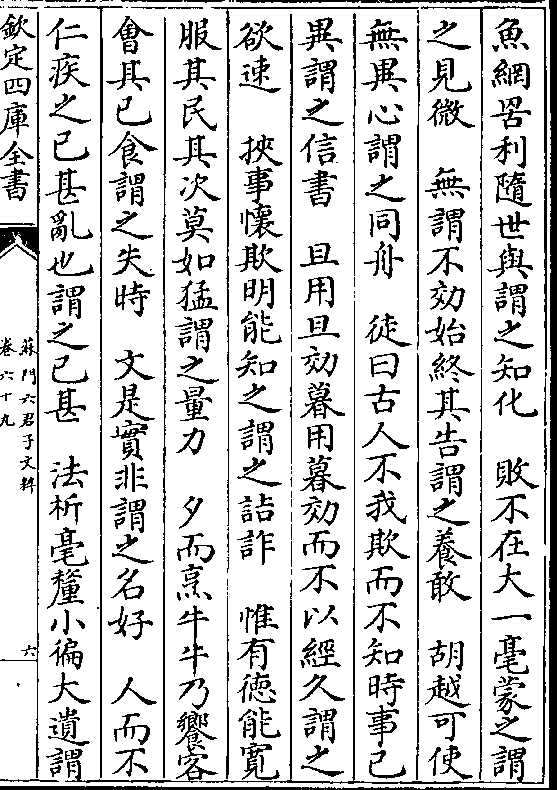 魚網罟利隨世與謂之知化　敗不在大一毫蒙之謂
之見微　無謂不効始終其告謂之養敢　胡越可使
無異心謂之同舟　徒曰古人不我欺而不知時事已
異謂之信書　旦用旦効暮用暮効而不以經久謂之
欲速　挾事懷欺明能知之謂之詰詐　惟有徳能寛
服其民其次莫如猛謂之量力　夕而烹牛牛乃饗客
㑹其已食謂之失時　文是實非謂之名好　人而不
仁疾之已甚亂也謂之已甚　法析毫釐小徧大遺謂
欽定四庫全書
蘇門六君子文粹
卷六十九
六